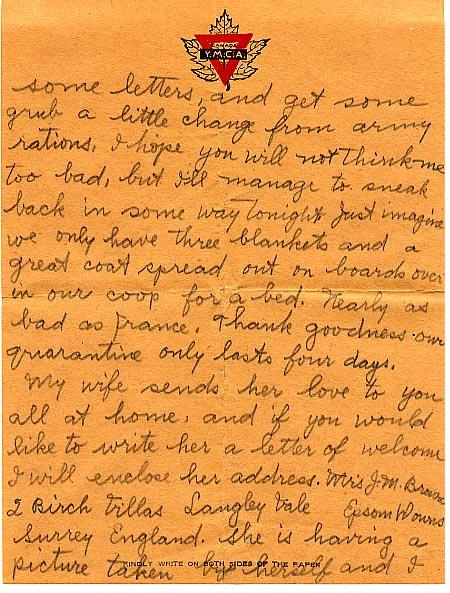 CANADA
Y.M.C.A.
some letters, and get some
grub a little change from army
rations. I hope you will not think me
too bad, but I'll manage to sneak
back in some way tonight. Just imagine
we only have three blankets and a
great coat spread out on boards over
in our coop for a bed. Nearly as
bad as France. Thank goodness our
quarantine only lasts four days.
My wife sends her love to you
all at home, and if you would
like to write her a letter of welcome
I will enclose her address. Mrs J.M. Brown
2 Birch Villas Langley Vale Epsom Downs
Surrey England. She is having a
picture taken by herself and I
KINDLY WRITE ON BOTH SIDES OF THE PAPER